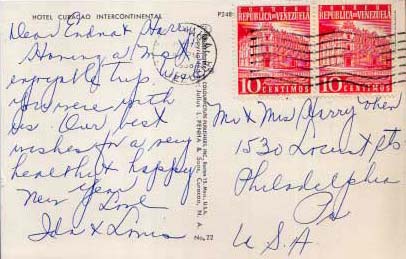 HOTEL CURAÇAO INTERCONTINENTAL
Dear Endna & Harry
Having a Most
enjoyable trip. Wish
you were with
us. Our best
wishes for a very
health & happy
New Year
Love
Ida & Louis
No. 22
CORREO
REPUBLICA DE VENEZUELA
10 CENTIMOS
CORREO
REPUBLICA DE VENEZUELA
10 CENTIMOS
Mr & Mrs Harry
1530 Locust St
Philadelphia
Pa
U.S.A